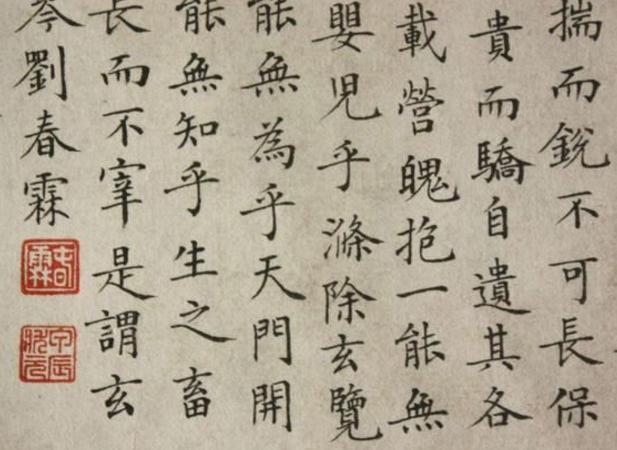 揣而銳不可長保
貴而驕自遺其各
載營魄抱一能無
嬰児乎滌除玄覽
能無為乎天門開
能無知乎生之畜
長而不宰是謂玄
岑劉春霖
春霖
甲辰狀元